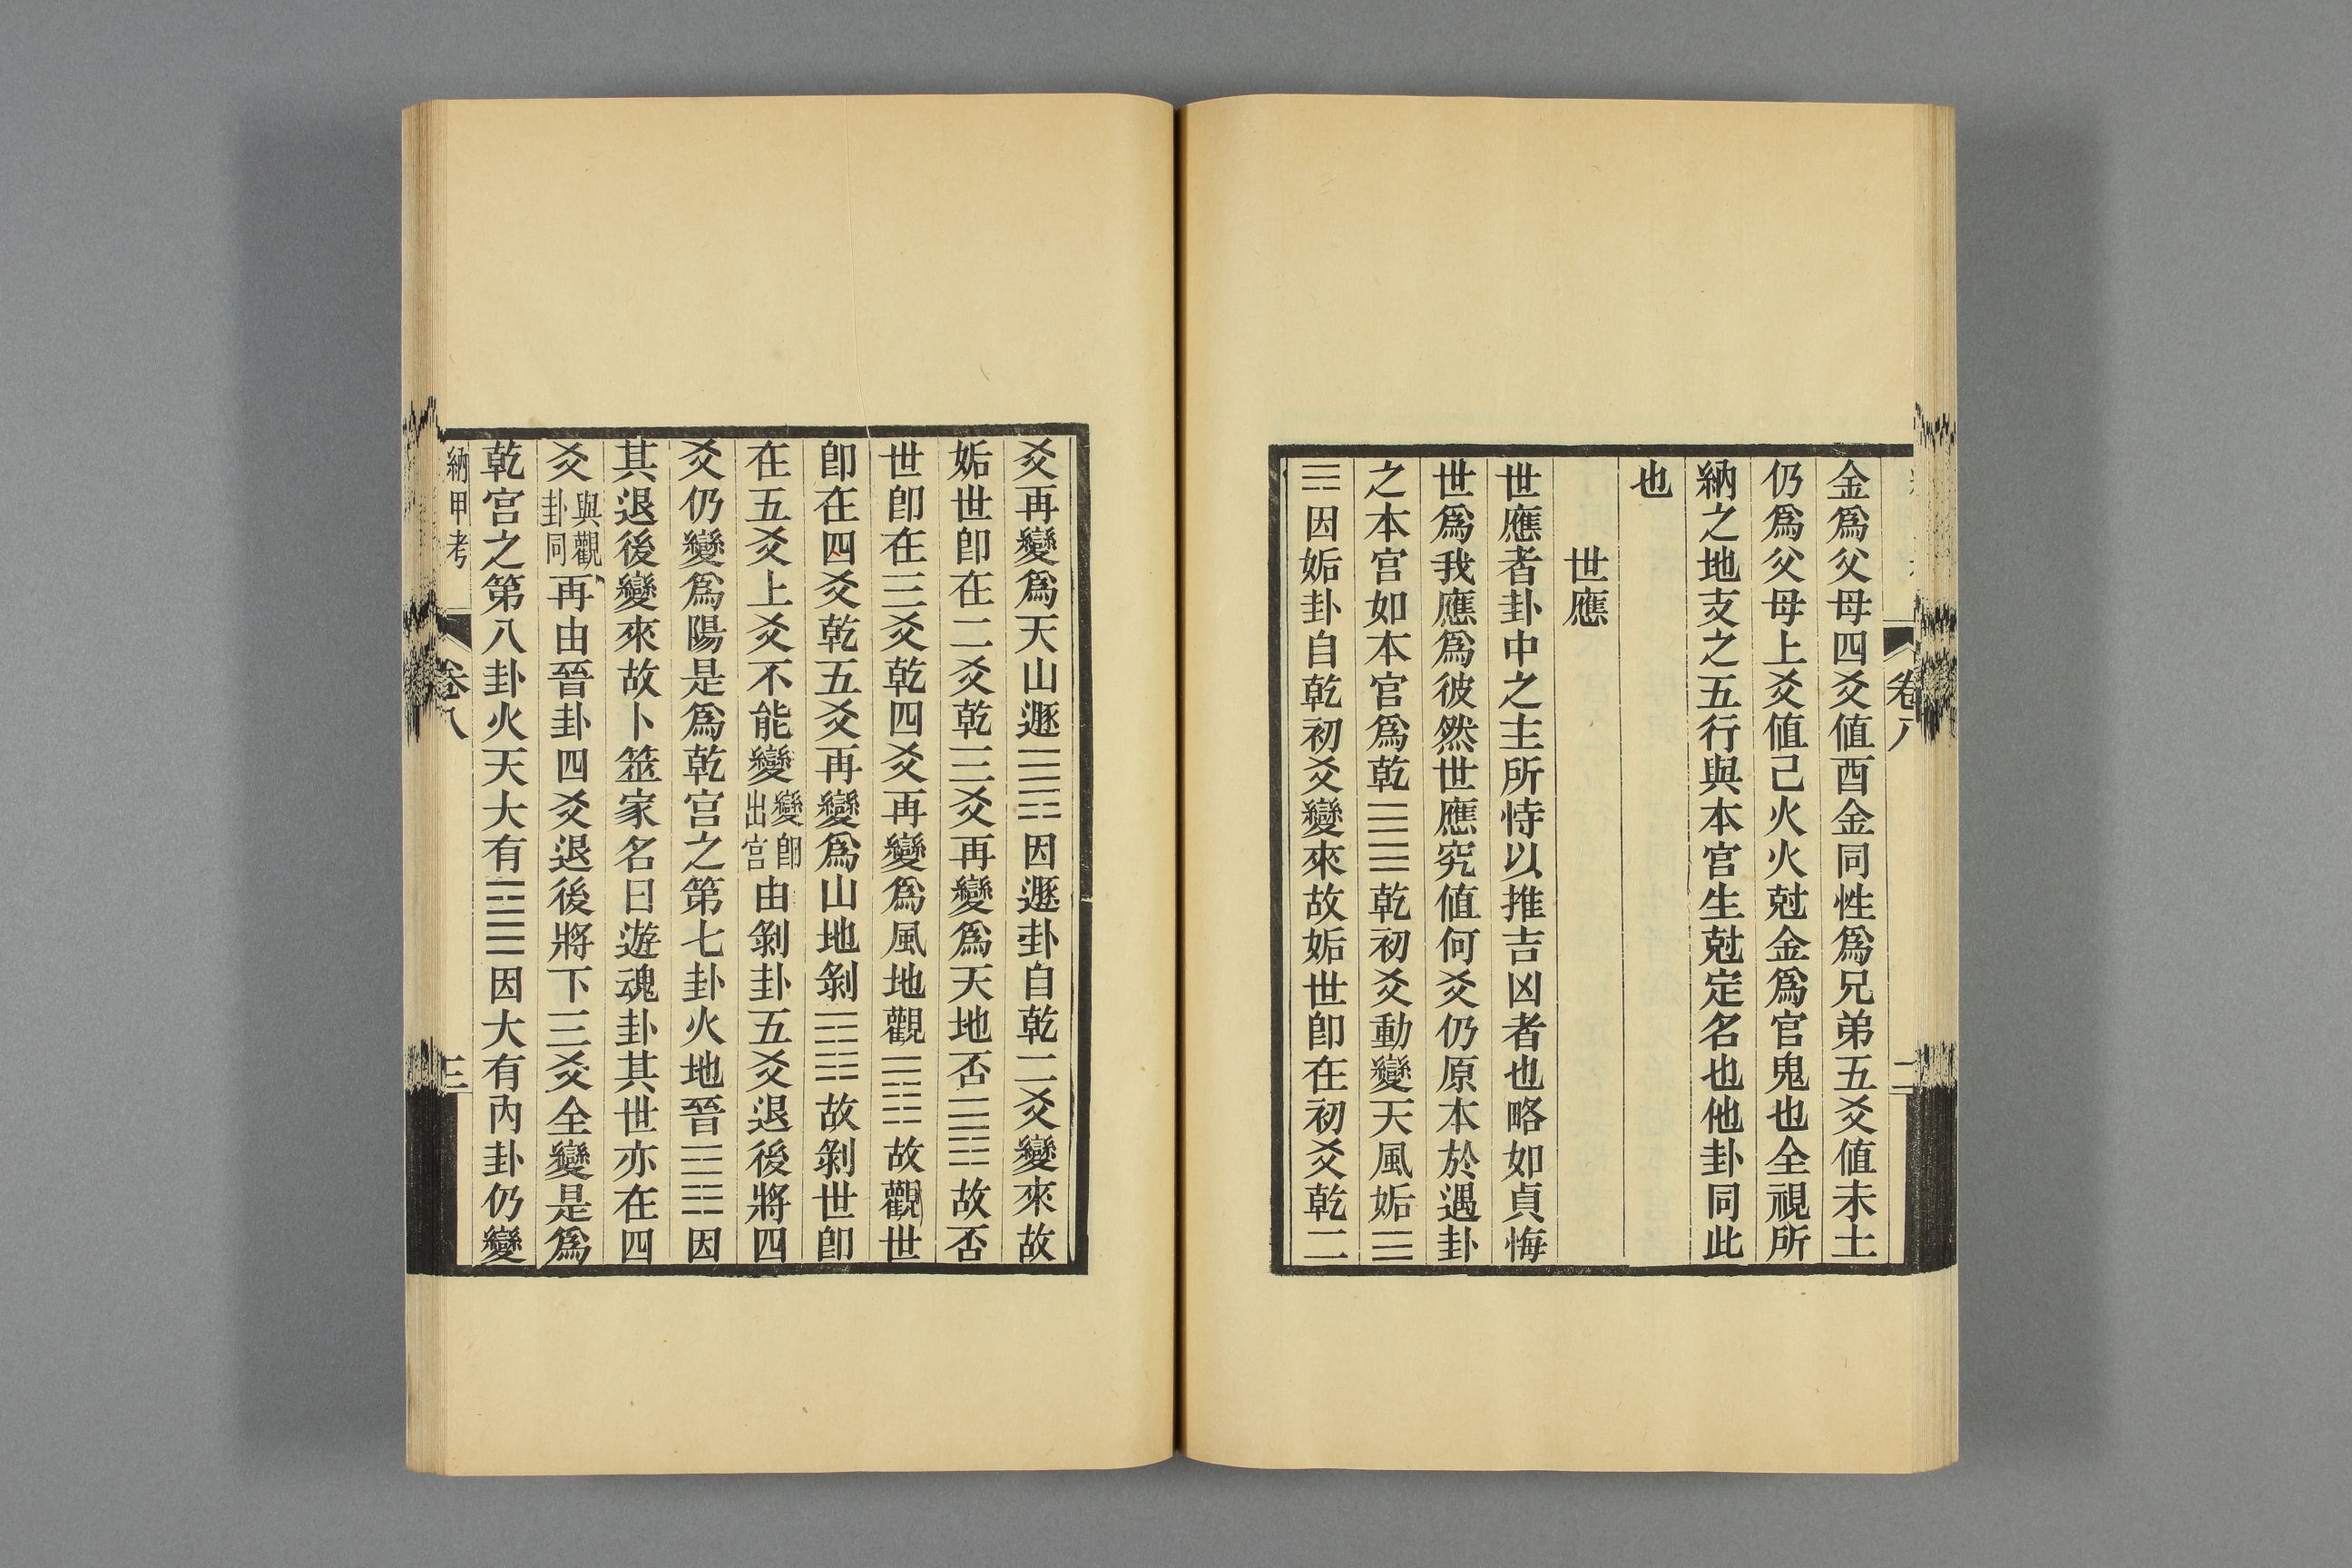 卷八 二
金爲父母四爻值酉金同性爲兄弟五爻值未土
仍爲父母上爻值己火火尅金爲官鬼也全視所
納之地支之五行與本宮生尅定名也他卦同此
也
世應
世應者卦中之主所恃以推吉凶者也略如貞悔
世爲我應爲彼然世應究值何爻仍原本於遇卦
之本宮如本宮爲乾☰☰乾初爻動變天風姤☰
☴因姤卦自乾初爻變來故姤世卽在初爻乾二
爻再變爲天山遯☰☶因遯卦自乾二爻變來故
姤世卽在二爻乾三爻再變爲天地否☰☷故否
世卽在三爻乾四爻再變爲風地觀☴☷故觀世
卽在四爻乾五爻再變爲山地剝☶☷故剝世卽
在五爻上爻不能變變卽出宮由剝卦五爻退後將四
爻仍變爲陽是爲乾宮之第七卦火地晉☲☷因
其退後變來故卜筮家名曰遊魂卦其世亦在四
爻與觀卦同再由晉卦四爻退後將下三爻全變是爲
乾宮之第八卦火天大有☲☰因大有內卦仍變
納甲考 卷八 三